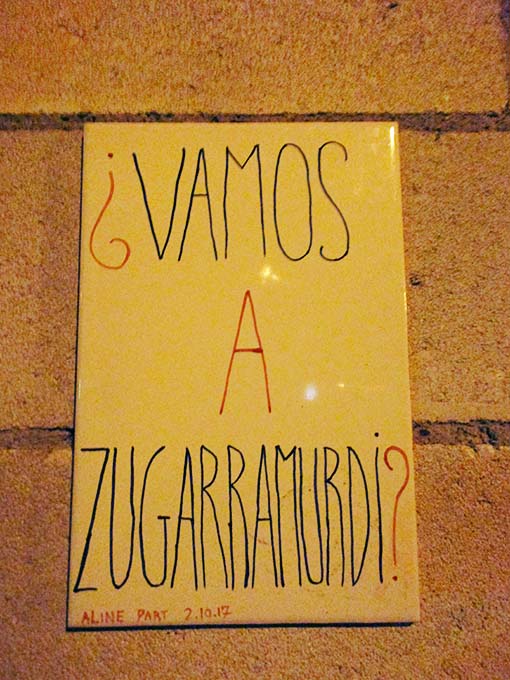 ¿VAMOS
A
ZUGARRAMURDi?
ALINE PART 2.10.17